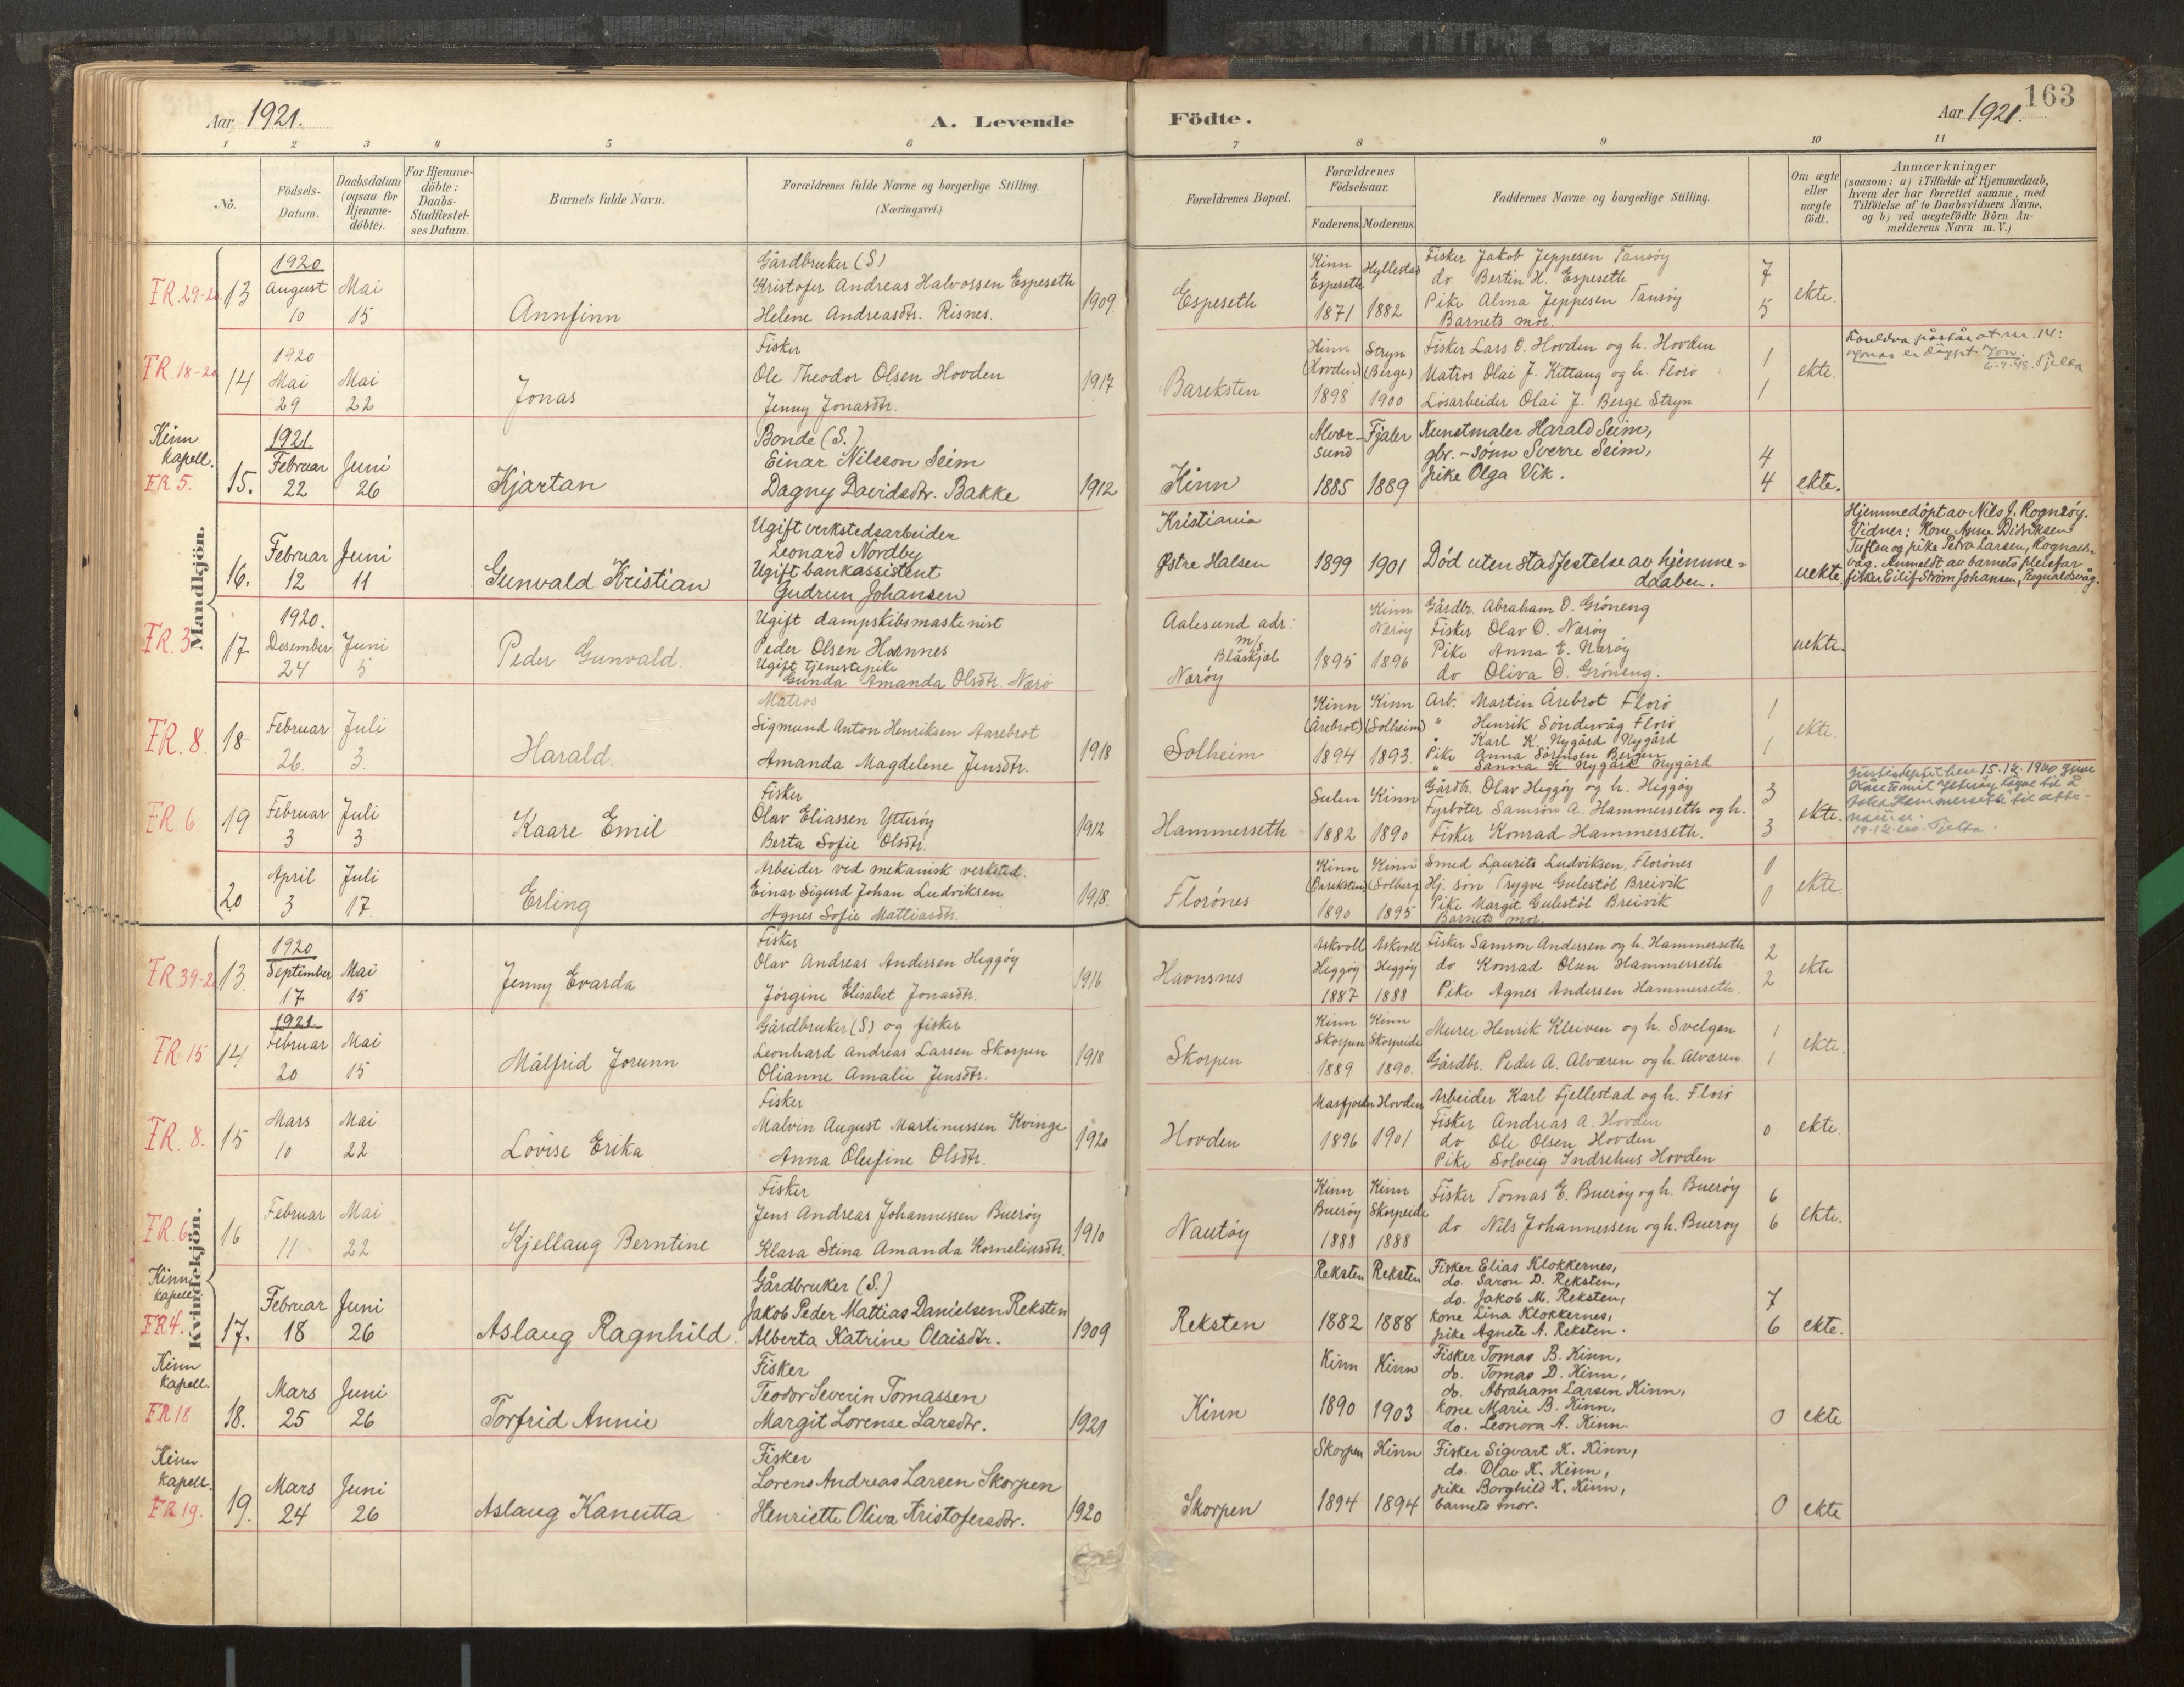 Aar 1921.
A. Levende
Födte.
Aar 1921.
163
1 2 3 4 5 6 7 8 9 10 11
No.
Födsels-Datum.
Daabsdatum (ogsaa for Hjemmedöbte).
For Hjemmedöbte: Daabs-Stadfæstelses Datum.
Barnets fulde Navn.
Forældrenes fulde Navne og borgerlige Stilling.
(Næringsvei.)
Forældrenes Bopæl.
Forældrenes Födselsaar.
Faderens. Moderens.
Faddernes Navne og borgerlige Stilling.
Om ægte eller uægte födt.
Anmærkninger
(saasom: a) i Tilfælde af Hjemmedaab, hvem der har forrettet samme, med Tilföielse af to Daabsvidners Navne, og b) ved uægtefödte Börn Anmelderens Navn m. V.)
Mandkjön.
FR. 29-20. 13
1920 August 10
Mai 15
Annfinn
Gårdbruker (S)
Kristofer Andreas Halvorsen Espeseth
Helene Andreasdtr. Risnes.
1909.
Espeseth
Kinn Espeseth 1871
Hyllestad 1882
Fisker Jakob Jeppesen Tansøy
do Bertin H. Espeseth
Pike Alma Jeppesen Tansøy
Barnets mor.
7
5
ekte.
FR. 18-20 14
1920 Mai 29
Mai 22
Jonas
Fisker
Ole Theodor Olsen Hovden
Jenny Jonasdtr.
1917
Bareksten
Kinn (Hovden) 1898
Stryn (Berge) 1900
Fisker Lars O. Hovden og h. Hovden
Matros Olai J. Kittang og h. Florø
Løsarbeider Olai J. Berge Stryn
1
1
ekte.
Foreldra påstår at nr. 14:
Jonas er døypt Jon.
Fjelta
Kinn kapell.
FR 5. 15.
1921 Februar 22
Juni 26
Kjartan
Bonde (S.)
Einar Nilsson Seim
Dagny Davidsdtr. Bakke
1912
Kinn
Alversund 1885
Fjaler 1889
Kunstmaler Harald Seim,
gbr.-sønn Sverre Seim,
pike Olga Vik.
4
4
ekte.
16.
Februar 12
Juni 11
Gunvald Kristian
Ugift verkstedsarbeider
Leonard Nordby
Ugift bankassistent
Gudrun Johansen
Kristiania
Østre Halsen
1899
1901
Død uten stadfestelse av hjemmedaaben.
uekte.
Hjemmedøpt av Nils J. Rognsøy.
Vidner: Kone Anne Didriksen
Tuften og pike Petra Larsen, Rognaldsvåg.
Anmeldt av barnets pleiefar
fisker Eilif Strøm Johansen, Rognaldsvåg.
FR. 3 17
1920. Desember 24
Juni 5
Peder Gunvald.
Ugift dampskibsmaskinist
Peder Olsen Hannes
Ugift tjenestepike
Gunda Amanda Olsdtr. Nærø
Aalesund adr:
m/s Blåskjal
Nærøy
1895
Kinn Nærøy 1896
Gårdbr. Abraham O. Grøneng
Fisker Olav O. Nærøy
Pike Anna E. Nærøy
do Oliva D. Grøneng.
uekte.
FR. 8. 18
Februar 26.
Juli 3.
Harald.
Matros
Sigmund Anton Henriksen Aarebrot
Amanda Magdelene Jensdtr.
1918
Solheim
Kinn (Årebrot) 1894
Kinn (Solheim) 1893.
Arb. Martin Årebrot Florø
" Henrik Søndrvåg Florø
" Karl K. Nygård Nygård
Pike Anna Sørensen Bergen
" Sanna K. Nygård Nygård
1
1
ekte.
FR. 6. 19
Februar 3
Juli 3
Kaare Emil
Fisker
Olav Eliassen Ytterøy
Berta Sofie Olsdtr.
1912
Hammerseth
Sulen 1882
Kinn 1890
Gårdbr. Olav Heggøy og h. Heggøy
Fyrbøter Samson A. Hammerseth og h.
Fisker Konrad Hammerseth.
3
3
ekte.
15.12.1940
Kåre Emil Ytterøy
19.12.40. Fjelta.
20
April 3
Juli 17.
Erling
Arbeider ved mekanisk verksted.
Einar Sigurd Johan Ludviksen
Agnes Sofie Mattiasdtr.
1918.
Florønes
Kinn (Bareksten) 1890
Kinn (Solberg) 1895
Smed Laurits Ludviksen, Florønes
Hj. søn Trygve Gulestøl Breivik
Pike Margit Gulestøl Breivik
Barnets mor.
0
0
ekte.
Kvindekjön.
FR. 39-2 13.
1920 September 17
Mai 15
Jenny Evarda
Fisker
Olav Andreas Andersen Heggøy
Jørgine Elisabet Jonasdtr.
1916
Havnsnes
Askvoll Heggøy 1887
Askvoll Heggøy 1888
Fisker Samson Andersen og h. Hammerseth
do Konrad Olsen Hammerseth
Pike Agnes Andersen Hammerseth.
2
2
ekte
FR 15 14
1921. Februar 20
Mai 15
Målfrid Jorunn
Gårdbruker (S) og fisker
Leonhard Andreas Larsen Skorpen
Olianne Amalie Jensdtr.
1918
Skorpen
Kinn Skorpen 1889
Kinn Skorpeide 1890.
Murer Henrik Kleiven og h. Svelgen
Gårdbr. Peder A. Alværen og h. Alværen
1
1
ekte.
FR. 8. 15
Mars 10
Mai 22
Lovise Erika
Fisker
Malvin August Martinussen Kvinge
Anna Olufine Olsdtr.
1920
Hovden
Masfjorden 1896
Hovden 1901
Arbeider Karl Fjellestad og h. Florø
Fisker Andreas A. Hovden
do Ole Olsen Hovden
Pike Solveig Indrehus Hovden
0
ekte.
FR. 6 16
Februar 11
Mai 22
Kjellaug Berntine
Fisker
Jens Andreas Johannessen Buerøy
Klara Stina Amanda Korneliusdtr.
1910
Nautøy
Kinn Buerøy 1888
Kinn Skorpeide 1888
Fisker Tomas E. Buerøy og h. Buerøy
do Nils Johannessen og h. Buerøy
6
6
ekte.
Kinn kapell
FR 4. 17.
Februar 18
Juni 26
Aslaug Ragnhild.
Gårdbruker (S.)
Jakob Peder Mattias Danielsen Reksten
Alberta Katrine Olaisdtr.
1909
Reksten
Reksten 1882
Reksten 1888
Fisker Elias Klokkernes,
do. Saron D. Reksten,
do. Jakob M. Reksten,
kone Lina Klokkernes,
pike Agnete A. Reksten.
7
6
ekte.
Kinn kapell.
FR 18 18.
Mars 25
Juni 26
Torfrid Annie
Fisker
Teodor Severin Tomassen
Margit Lorense Larsdtr.
1921
Kinn
Kinn 1890
Kinn 1903
Fisker Tomas B. Kinn,
do. Tomas D. Kinn,
do. Abraham Larsen Kinn,
kone Marie B. Kinn,
do. Leonora A. Kinn.
0
ekte
Kinn kapell.
FR 19. 19.
Mars 24
Juni 26
Aslaug Kanutta
Fisker
Lorens Andreas Larsen Skorpen
Henriette Oliva Kristofersdtr.
1920
Skorpen
Skorpen 1894
Kinn 1894
Fisker Sigvart K. Kinn,
do. Olav K. Kinn,
pike Borghild K. Kinn,
barnets mor.
0
ekte